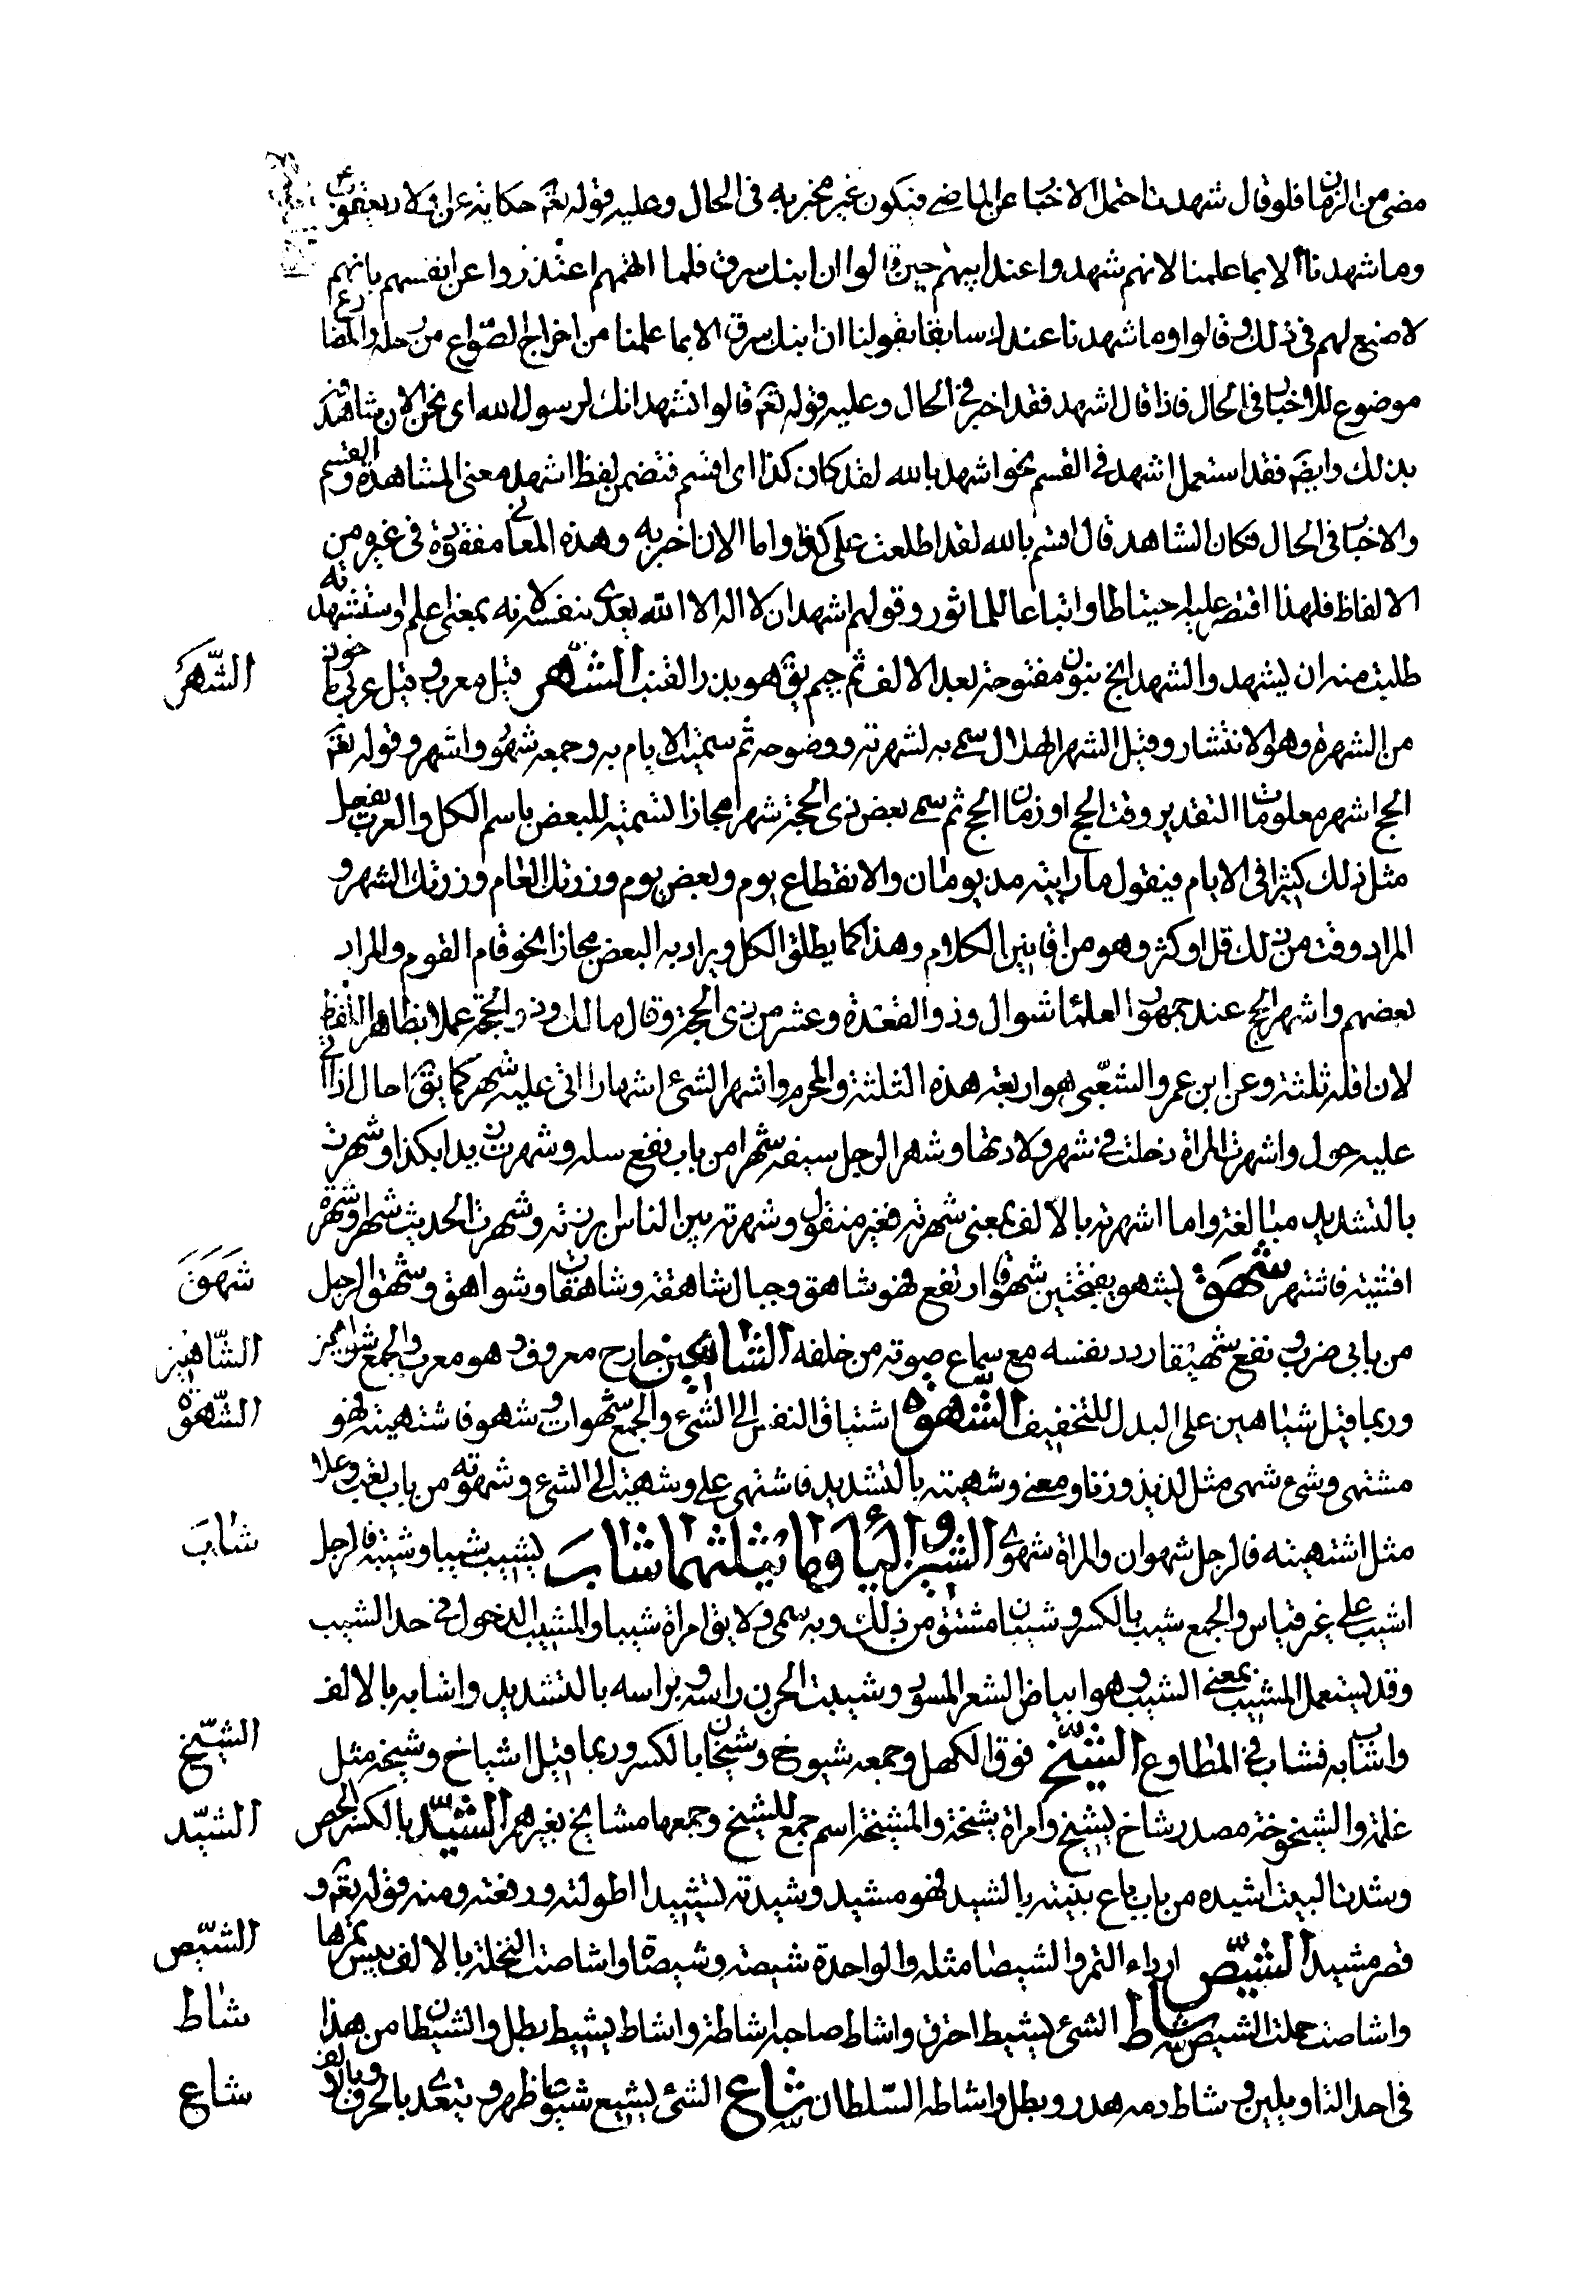 مضى من الزمان فلو قال شهدت احتمل الاخبار عن الماضي فيكون غير مخبر به فى الحال وعليه قوله تعم حكاية عن اولاد يعقوب ع
وما شهدنا الا بما علمنا لانهم شهدوا عند ابيهم حين قالوا ان ابنك سرق فلما اتهمهم اعتذروا عن انفسهم بانهم
لا صنع لهم فى ذلك وقالوا وما شهدنا عندك سابقا بقولنا ان ابنك سرق الا بما علمنا من اخراج الصّواع من رحله والمضارع
موضوع للاخبار فى الحال فاذا قال اشهد فقد اخبر فى الحال وعليه قوله تعم قالوا نشهد انك لرسول الله اى نحن الان شاهدون
بذلك وايضم فقد استعمل اشهد فى القسم نحو اشهد بالله لقد كان كذا اى اقسم فتضمن لفظ اشهد معنى المشاهدة والقسم
والاخبار فى الحال فكان الشاهد قال اقسم بالله لقد اطلعت على ذلك واما الان اخبر به وهذه المعانى مفقودة فى غيره من
الالفاظ فلهذا اقتصر عليه احتياطا واتباعا للماثور وقولهم اشهد ان لا اله الا الله تعدى بنفسه لانه بمعنى اعلم واستشهدته
طلبت منه ان يشهد والشهدانج بنون مفتوحة بعد الالف ثم جيم يق هو بذر القنب الشّهر قيل معرب وقيل عربى ماخوذ
من الشهرة وهو الانتشار وقيل الشهر الهلال سمى به لشهرته ووضوحه ثم سميت الايام به وجمعه شهور واشهر وقوله تعم
الحج اشهر معلومات التقدير وقت الحج او زمان الحج ثم سمى بعض ذى الحجة شهرا مجازا تسمية للبعض باسم الكل والعرب تفعل
مثل ذلك كثيرا فى الايام فيقول ما رايته مذ يومان والانقطاع يوم وبعض يوم وزرتك العام وزرتك الشهر و
المراد وقت من ذلك قل او كثر وهو من افانين الكلام وهذا كما يطلق الكل ويراد به البعض مجازا نحو قام القوم والمراد
بعضهم واشهر الحج عند جمهور العلماء شوال وذو القعدة وعشر من ذى الحجة وقال مالك وذو الحجة عملا بظاهر اللفظ
لان اقله ثلثة وعن ابن عمر والشعّبى هو اربعة هذه الثلثة والمحرم واشهر الشئ اشهارا اتى عليه شهر كما يق احال اذا اتى
عليه حول واشهرت المراة دخلت فى شهر ولادتها وشهر الرجل سيفه شهرا من باب نفع سله وشهرت زيدا بكذا وشهرت
بالتشديد مبالغة واما اشهرته بالالف بمعنى شهرته فغير منقول وشهرته بين الناس برزته وشهرت الحديث شهرا وشهرة
افشيته فاشتهر شَهَق يشهق بفتحتين شهوقا ارتفع فهو شاهق وجبال شاهقة وشاهقات وشواهق وشهق الرجل
من بابى ضرب ونفع شهيقا ردد نفسه مع سماع صوته من خلفه الشّاهين جارح معروف وهو معرب والجمع شواهين
وربما قيل شياهين على البدل للتخفيف الشّهوة اشتياق النفس الى الشئ والجمع شهوات وشهو فاشتهيته فهو
مشتهى وشئ شهى مثل لذيذ وزنا ومعنى وشهيته بالتشديد فاشتهى على وشهيت الى الشئ وشهوته من باب تعب وعلا
مثل اشتهيته فالرجل شهوان والمراة شهوى الشين والياء وما يثلثهما شابَ يشيب شيبا وشيبة فالرجل
اشيب على غير قياس والجمع شيب بالكسر وشيبان مشتق من ذلك وبه سمى ولا يق امراة شيبا والمشيب الدخول فى حد الشيب
وقد يستعمل المشيب بمعنى الشيب وهو ابيضاض الشعر المسود وشيبت الحزن راسه وبراسه بالتشديد واشابه بالالف
واشاب به فشاب فى المطاوع الشّيخ فوق الكهل وجمعه شيوخ وشيخان بالكسر وربما قيل اشياخ وشيخة مثل
غلمة والشيخوخة مصدر شاخ يشيخ وامراة شيخة والمشيخة اسم جمع للشيخ وجمعها مشايخ بغير همز الشّيد بالكسر الجص
وشدت البيت اشيده من باب باع بنيته بالشيد فهو مشيد وشيدته تشييدا طولته ورفعته ومنه قوله تعم و
قصر مشيد الشّيص ارداء التمر والشيصا مثله والواحدة شيصة وشيصاة واشاصت النخلة بالالف يبس تمرها
واشاصت حملت الشيص شاط الشئ يشيط احترق واشاط صاحبه اشاطة واشاط يشيط بطل والشيطان من هذا
فى احد التاويلين وشاط دمه هدر وبطل واشاطه السّلطان شاع الشئ يشيع شيوعا ظهر ويتعدى بالحرف وبالالف
الشّهر
شَهَقَ
الشّاهين
الشّهوة
شابَ
الشيّخ
الشيّد
الشيّص
شاط
شاع